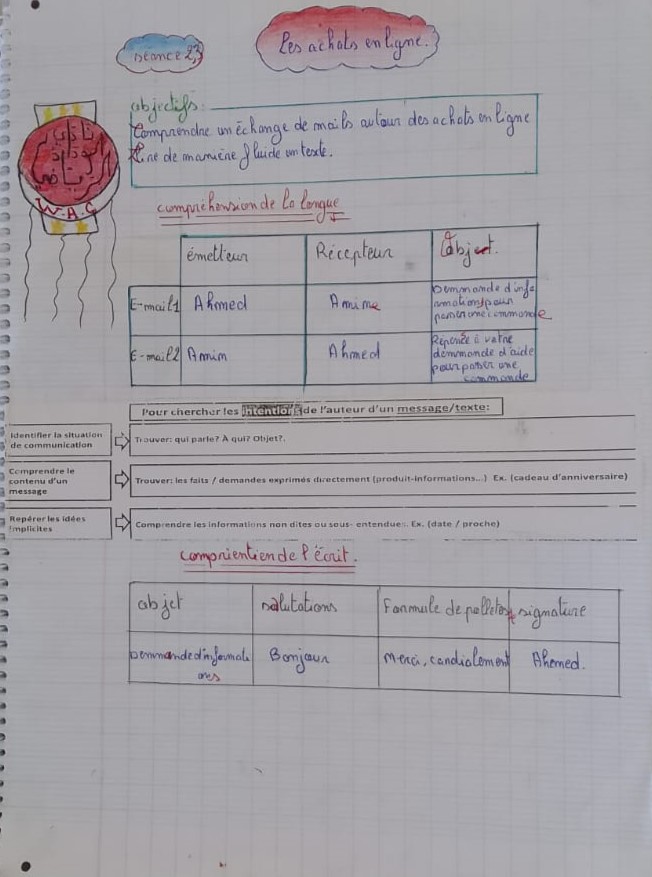 Les achats en ligne.
séance 2,3
objectifs:
Comprendre un échange de mails autour des achats en ligne
Lire de manière fluide un texte.
نادي
الوداد
الرياضي
W.A.C
compréhension de la langue
émetteur Récepteur L'object.
E-mail1 Ahmed Amime Demmande d'info
ramations pour
passer une commande
E-mail2 Amim Ahmed Réponse à votre
demmande d'aide
pour passer une
commande
Pour chercher les intentions de l'auteur d'un message/texte:
Identifier la situation
de communication
Trouver: qui parle? À qui? Objet?.
Comprendre le
contenu d'un
message
Trouver: les faits / demandes exprimés directement (produit-informations...) Ex. (cadeau d'anniversaire)
Repérer les idées
implicites
Comprendre les informations non dites ou sous- entendues. Ex. (date / proche)
de l'écrit.
objet salutations Formule de signature
Demmande d'informati
ons
Bonjour Merci, cordialement Ahemed.